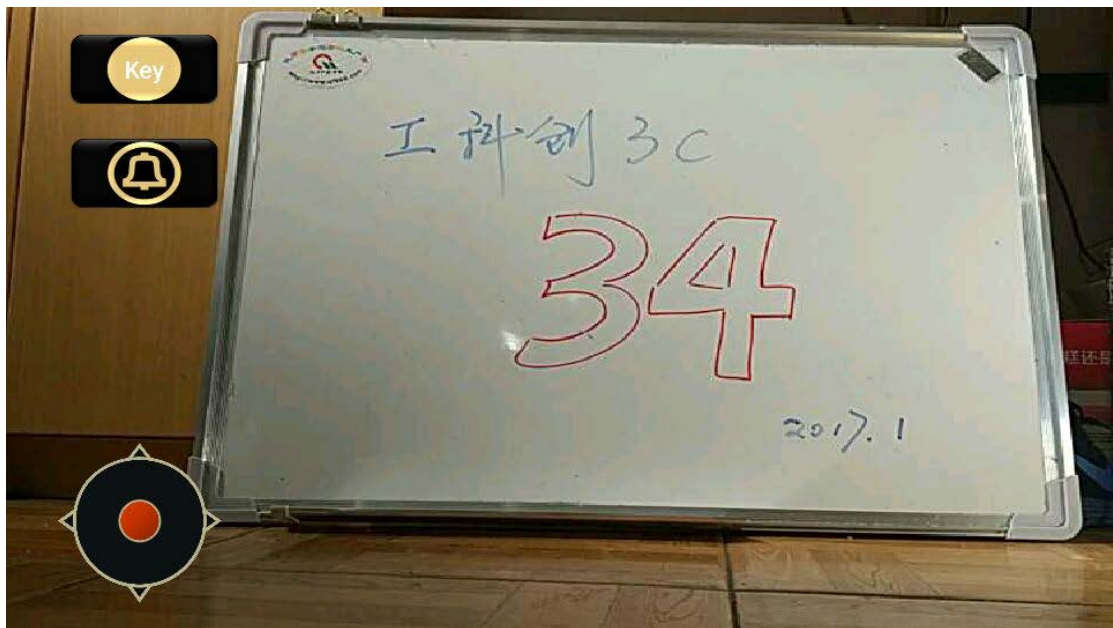 Key
工科创3C
34
2017.1
还是